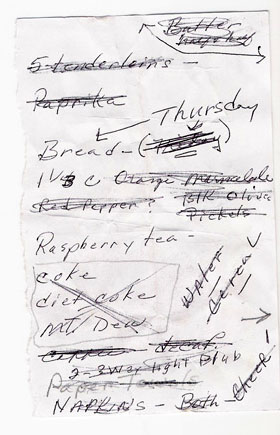 Butter
Napkins
5 tenderloins -
Paprika
Thursday
Bread -
1 1/3 C Orange Marmalade
Red Pepper? Blk Olive
Pickels
Raspberry tea -
coke
diet coke
Mt. Dew
WATER
Cereal
Coffee - decaf
2 - 3 Way light Bulb
Paper Towels
NAPKINS - Both
CHEER!